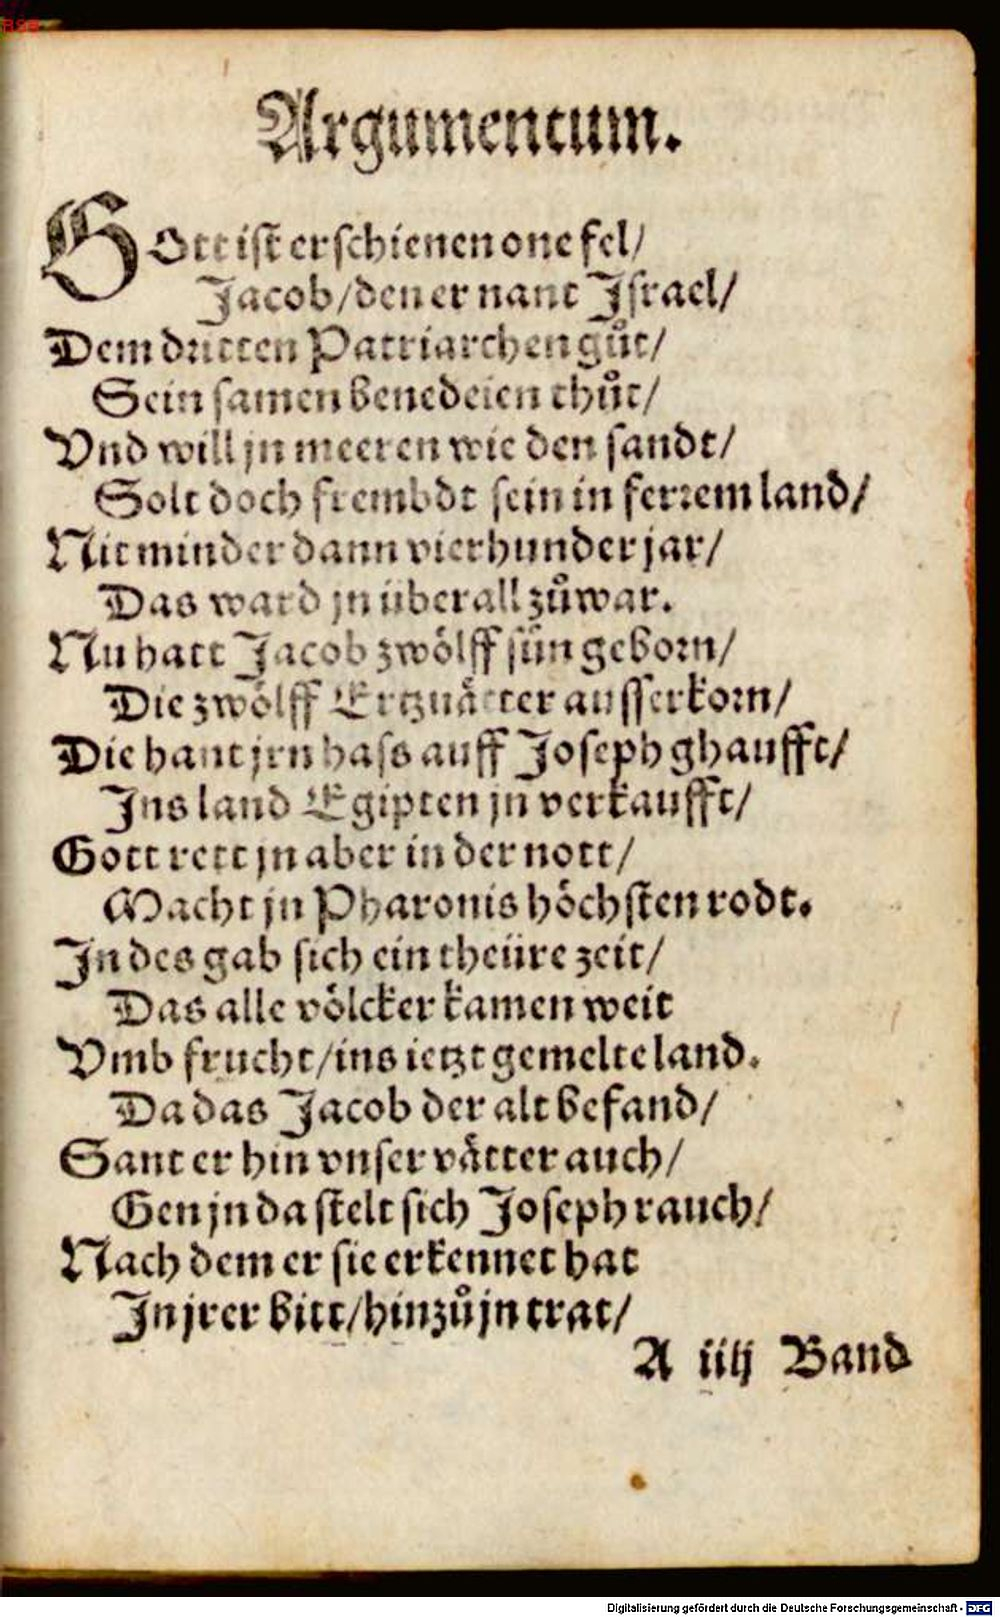 BSB
Argumentum.
GOtt ist erschienen one fel/
Jacob/den er nant Jsrael/
Dem dritten Patriarchen gůt/
Sein samen benedeien thůt/
Vnd will jn meeren wie den sandt/
Solt doch frembdt sein in ferrem land/
Nit minder dann vierhunder jar/
Das ward jn überall zůwar.
Nu hatt Jacob zwölff sün geborn/
Die zwölff Ertzuåtter ausserkorn/
Die hant jrn hass auff Joseph ghaufft/
Jns land Egipten jn verkaufft/
Gott rett jn aber in der nott/
Macht jn Pharonis höchsten rodt.
Jn des gab sich ein theüre zeit/
Das alle völcker kamen weit
Vmb frucht/ins ietzt gemelte land.
Da das Jacob der alt befand/
Sant er hin vnser våtter auch/
Gen jn da stelt sich Joseph rauch/
Nach dem er sie erkennet hat
Jn jrer bitt/hinzů jn trat/
A iiij Band
Digitalisierung gefördert durch die Deutsche Forschungsgemeinschaft - DFG